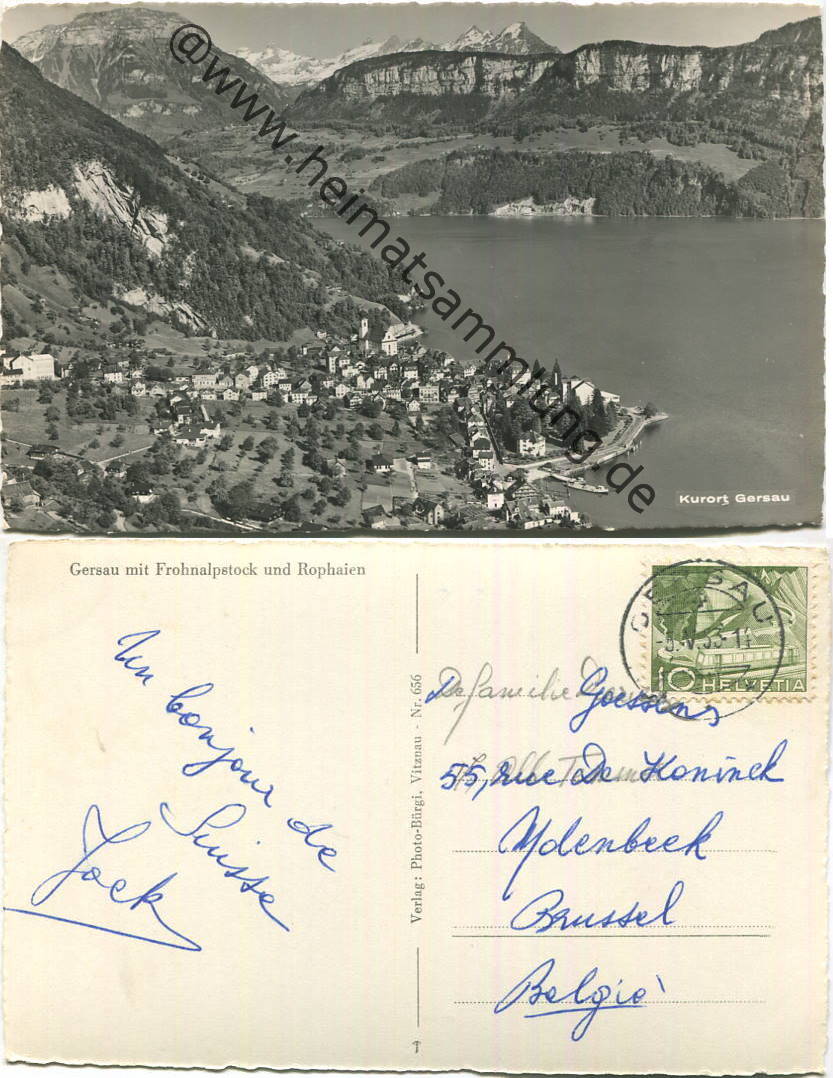 @www.heimatsammlung.de
Kurort Gersau
Gersau mit Frohnalpstock und Rophaien
GERSAU
10 HELVETIA
Un bonjour de
Suisse
Jock
Verlag: Photo-Bürgi, Vitznau - Nr. 656
De familie
Goessens
55, rue De Koninck
Molenbeek
Brussel
België